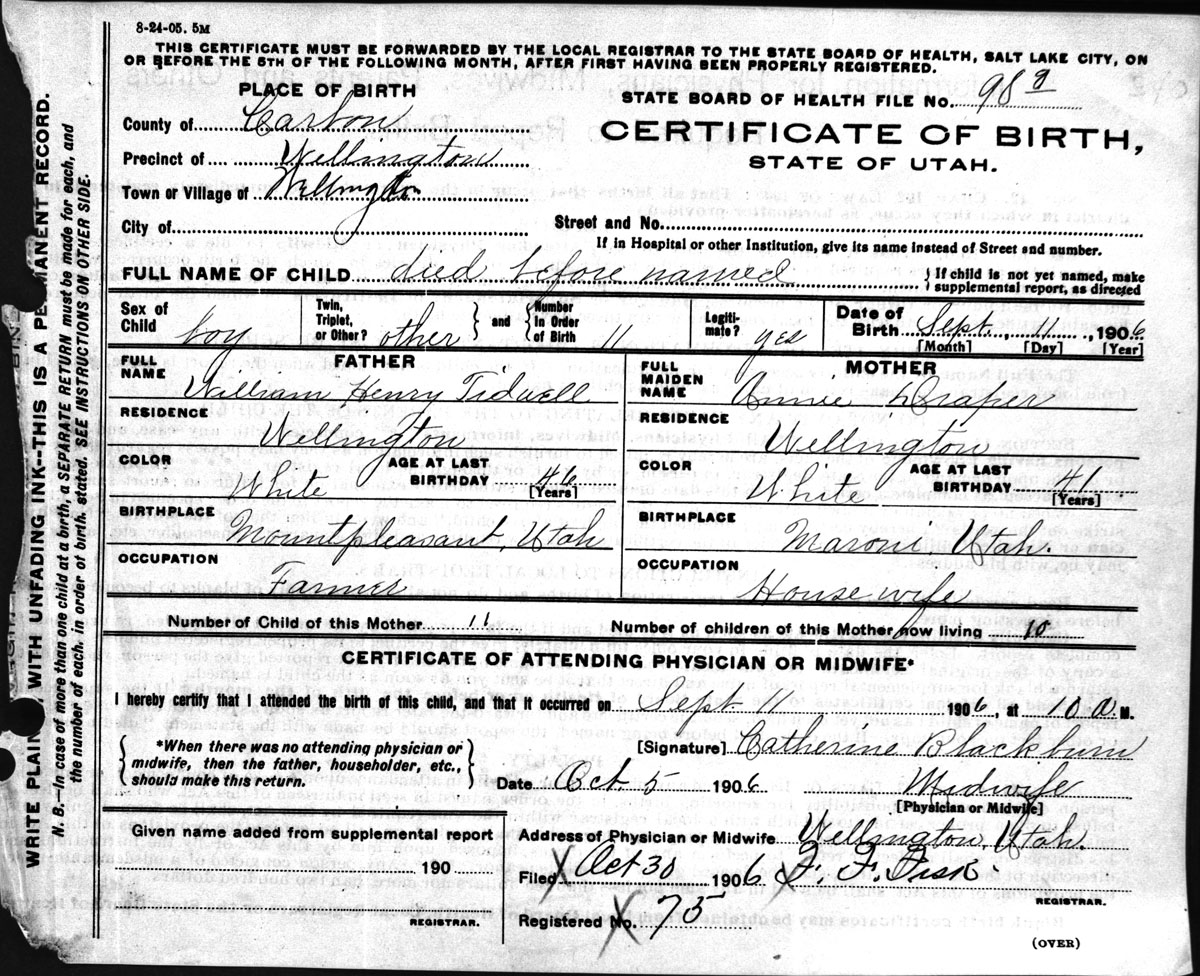 8-24-05. 5M
THIS CERTIFICATE MUST BE FORWARDED BY THE LOCAL REGISTRAR TO THE STATE BOARD OF HEALTH, SALT LAKE CITY, ON
OR BEFORE THE 5TH OF THE FOLLOWING MONTH, AFTER FIRST HAVING BEEN PROPERLY REGISTERED.
PLACE OF BIRTH
STATE BOARD OF HEALTH FILE No. 98
County of Carbon
CERTIFICATE OF BIRTH,
STATE OF UTAH.
Precinct of Wellington
Town or Village of Wellington
City of
Street and No.
If in Hospital or other Institution, give its name instead of Street and number.
FULL NAME OF CHILD died before named
If child is not yet named, make
supplemental report, as directed
Sex of Child boy
Twin, Triplet, or Other? other
and Number in Order of Birth 11
Legitimate? yes
Date of Birth Sept. 11, 1906
[Month] [Day] [Year]
FATHER
FULL NAME William Henry Tidwell
RESIDENCE
Wellington
COLOR White
AGE AT LAST BIRTHDAY 46
[Years]
BIRTHPLACE
Mountpleasant, Utah
OCCUPATION
Farmer
MOTHER
FULL MAIDEN NAME Annie Draper
RESIDENCE
Wellington
COLOR White
AGE AT LAST BIRTHDAY 41
[Years]
BIRTHPLACE
Maroni Utah.
OCCUPATION
Housewife
Number of Child of this Mother 11
Number of children of this Mother now living 10
CERTIFICATE OF ATTENDING PHYSICIAN OR MIDWIFE*
I hereby certify that I attended the birth of this child, and that it occurred on Sept. 11 1906, at 10 a M.
*When there was no attending physician or
midwife, then the father, householder, etc.,
should make this return.
[Signature] Catherine Blackburn
Date Oct. 5 1906
Midwife
[Physician or Midwife]
Given name added from supplemental report
190
REGISTRAR.
Address of Physician or Midwife Wellington, Utah.
Filed Oct 30 1906 F. F. Fisk
REGISTRAR.
Registered No. 75
(OVER)
WRITE PLAINLY WITH UNFADING INK--THIS IS A PERMANENT RECORD.
N. B.--In case of more than one child at a birth, a SEPARATE RETURN must be made for each, and
the number of each, in order of birth, stated. SEE INSTRUCTIONS ON OTHER SIDE.